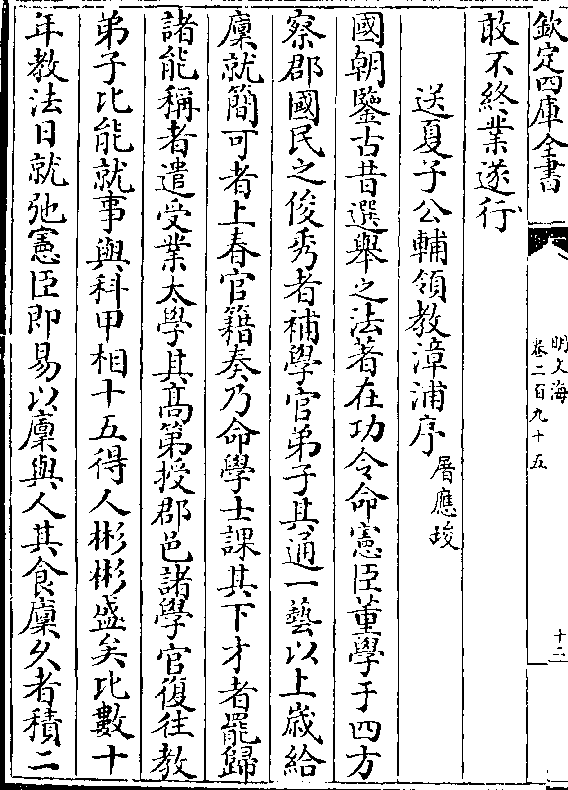 欽定四庫全書
明文海
卷二百九十五
十二
敢不終業遂行
送夏子公輔領教漳浦序 屠應埈
國朝鑒古昔選舉之法著在功令命憲臣董學于四方
察郡國民之俊秀者補學官弟子其通一藝以上歲給
廩就簡可者上春官籍奏乃命學士課其下才者罷歸
諸能稱者遣受業太學其高第授郡邑諸學官復往教
弟子比能就事與科甲相十五得人彬彬盛矣比數十
年教法日就弛憲臣即易以廩與人其食廩久者積二